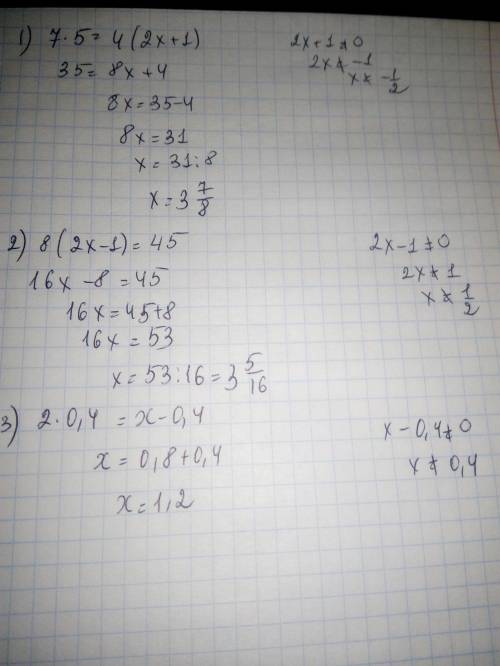 1) 7·5 = 4(2x+1)
2x+1≠0
35 = 8x+4
2x≠-1
x≠-1/2
8x=35-4
8x=31
x=31:8
x=3 7/8
2) 8(2x-1)=45
2x-1≠0
16x-8=45
2x≠1
x≠1/2
16x=45+8
16x=53
x=53:16=3 5/16
3) 2·0,4 = x-0,4
x-0,4≠0
x=0,8+0,4
x≠0,4
x=1,2